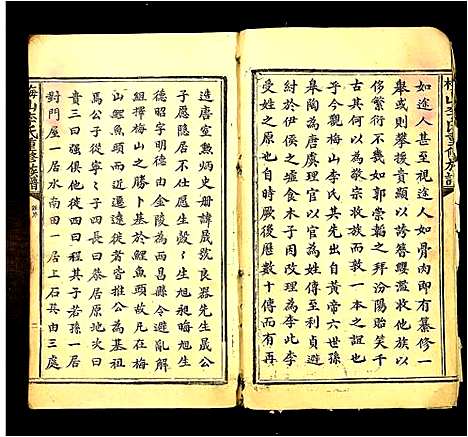 如途人甚至視途人如骨肉即有纂修一
舉或則攀援貴顯以誇簪纓濫收他族以
侈繁衍不幾如郭崇韜之拜汾陽貽笑千
古也其何以為敬宗收族而敦一本之誼也
于今觀梅山李氏其先出自黃帝六世孫
皋陶為唐虞官以官為氏厥後子利貞避
居於伊之墟食木子而得全因改理為李此李
受姓之原也厥後歷數十傳而再
造唐室勳炳史冊諱晟號良器先生晟公
子愿隱居不仕愿生殼生旭昶晦
昶昭字明德由金陵為西昌縣令避亂解
組擇梅山之勝卜基於鯉魚頭故凡在梅
山鯉魚頭而近遷遠徙者皆以公為基祖
焉公子從寧子四長曰藜居原地次曰
貴三曰四曰程其子若孫一居
對門屋一居水南田一居上石其由三處
梅山李氏重修族譜
梅山李氏重修族譜